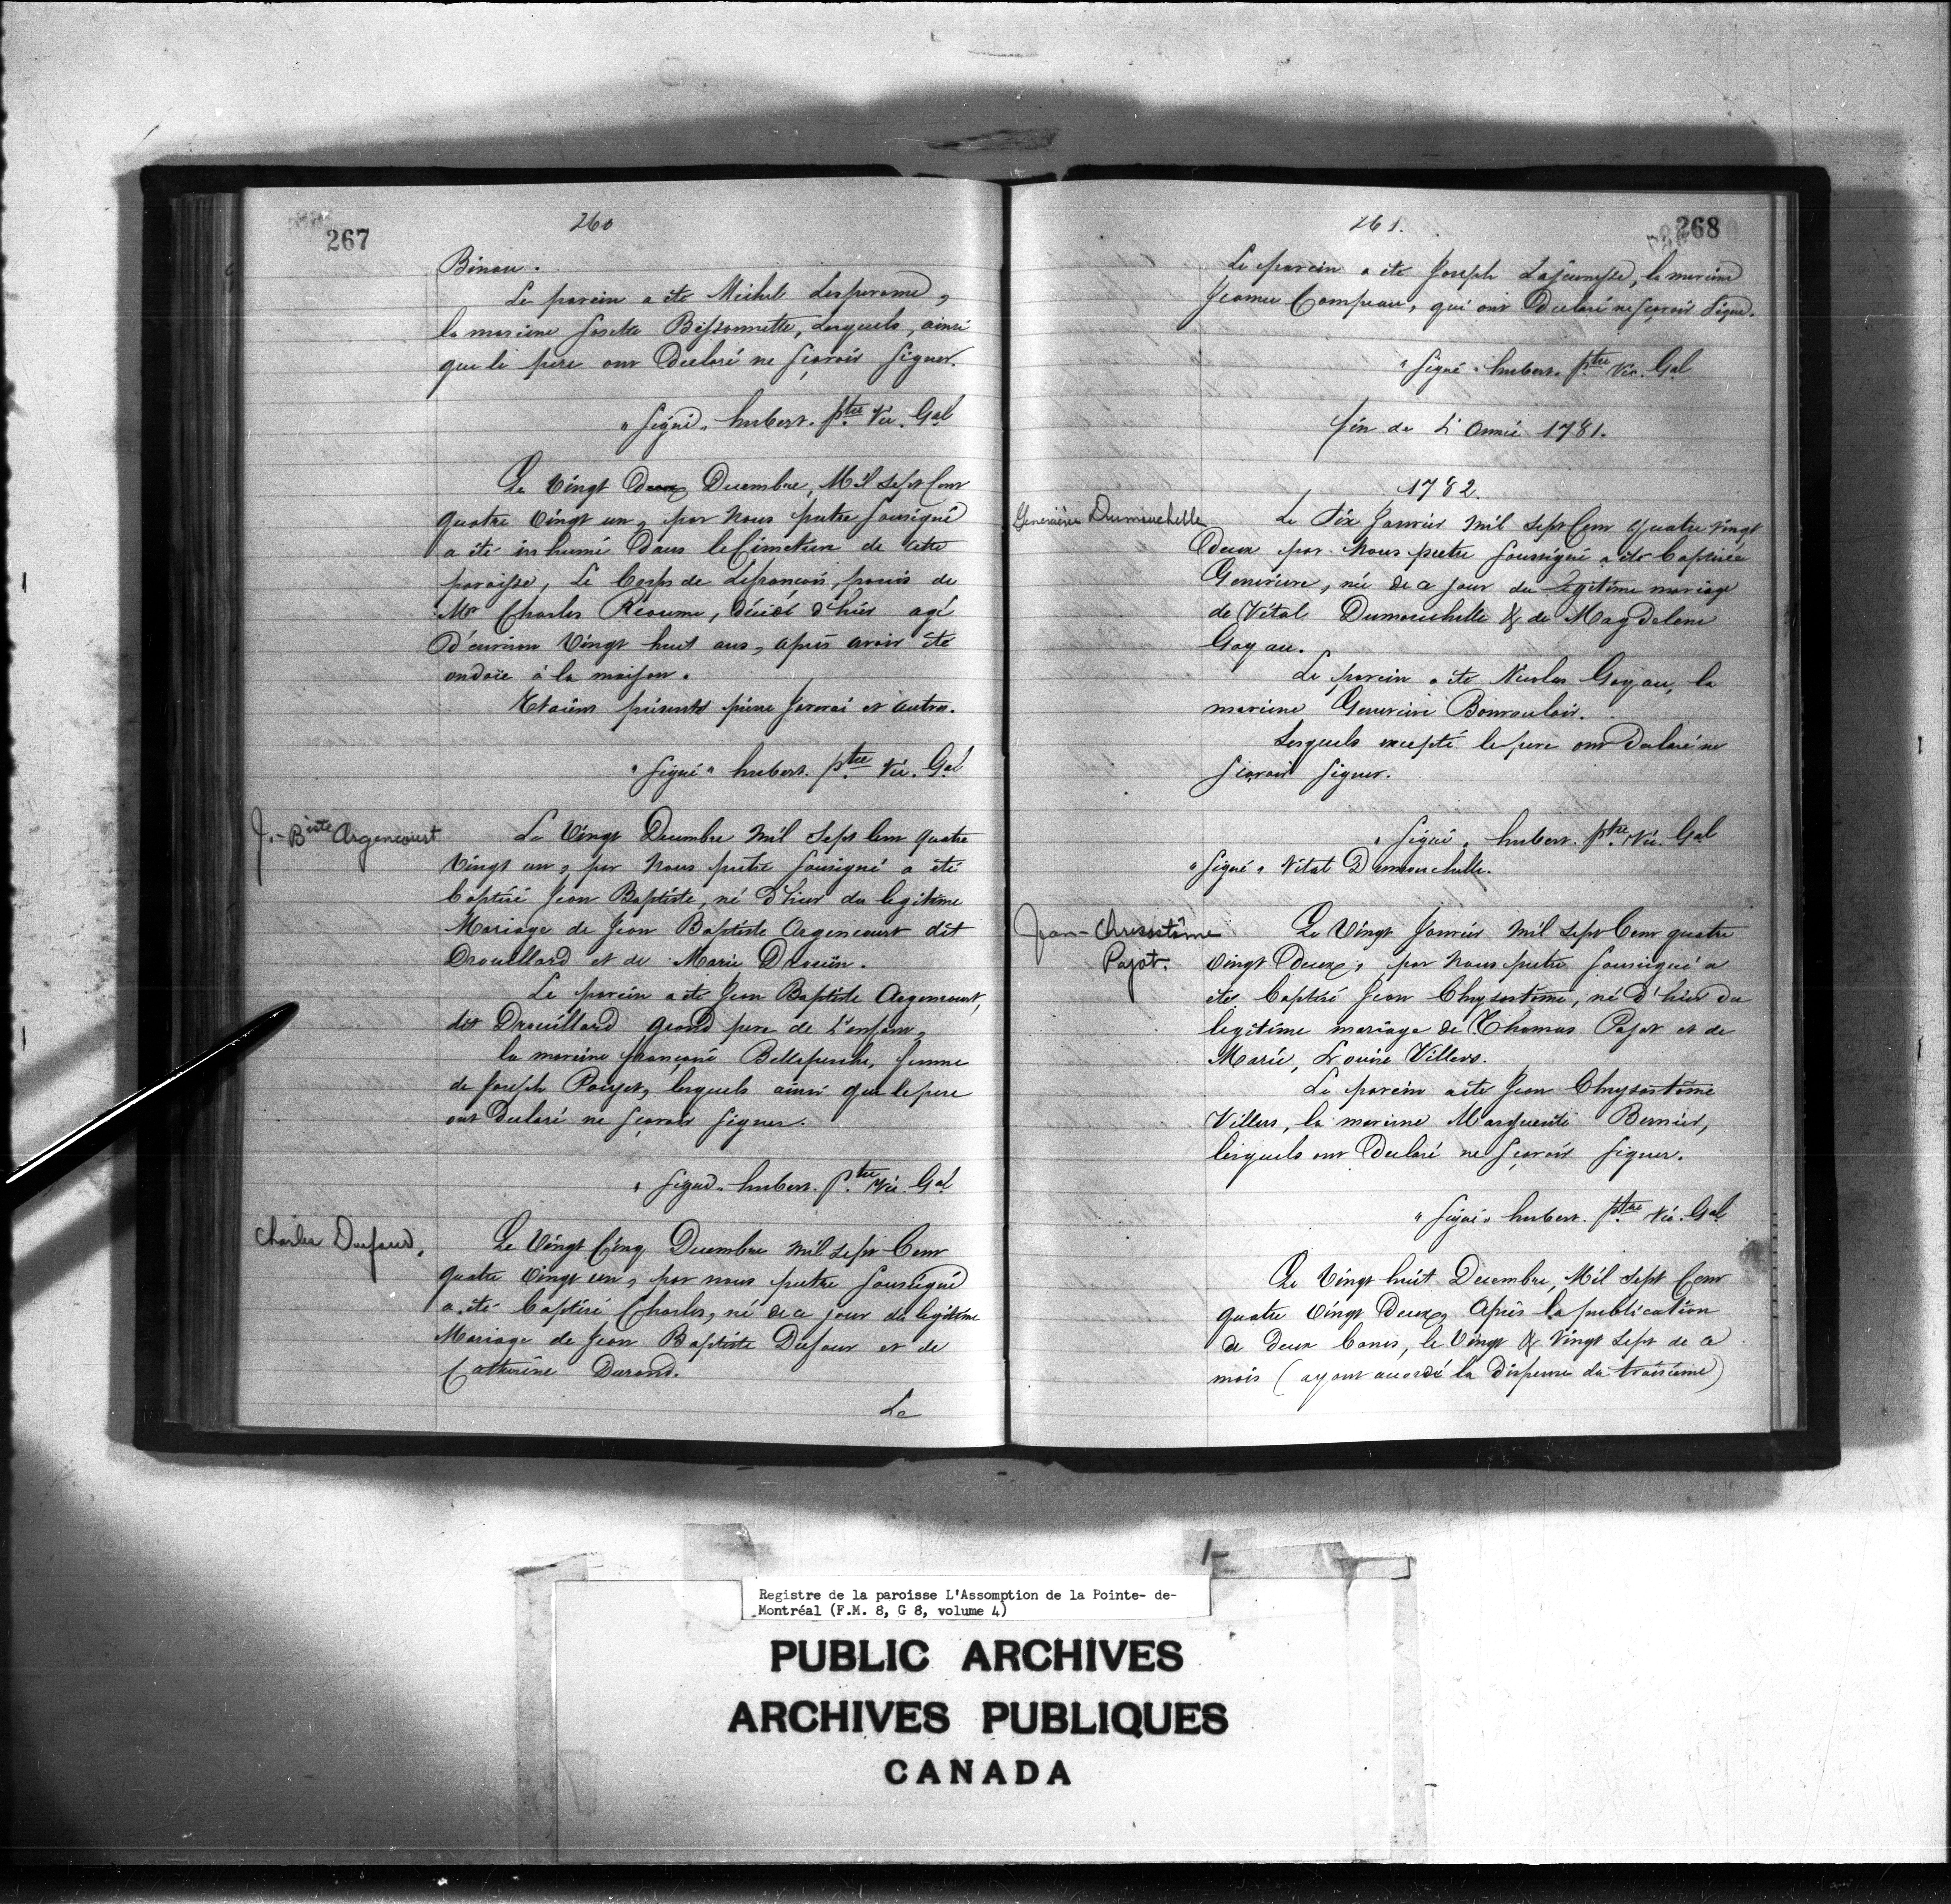 267
260
Binau.
Le parein a été Michel Lesperance,
la mareine Josette Bissonnette, Lesquels, ainsi
que le pere ont Declaré ne sçavoir signer.
"signé" hubert. ptre Vic. Gal
Le Vingt Deux Decembre, Mil Sept Cent
quatre Vingt un, par Nous pretre soussigné
a été inhumé Dans le Cimetiere de cette
paroisse, Le Corps de
Mr Charles Réaume, décédé d'hier agé
D'environ Vingt huit ans, après avoir été
ondoié à la maison.
Etoient présents pierre et autres.
"signé" hubert. ptre Vic. Gal
J.-Biste Argencourt
Le Vingt Decembre Mil Sept Cent quatre
Vingt un, par Nous pretre soussigné a été
baptisé Jean Baptiste, né D'hier du legitime
Mariage de Jean Baptiste Argencourt dit
Drouillard et de Marie Drouin.
Le parein a été Jean Baptiste Argencourt,
dit Drouillard grand pere de L'enfant,
la mareine françoise Belleperche, femme
de Joseph Pouget, lesquels ainsi que le pere
ont Declaré ne sçavoir signer.
"signé" hubert. ptre Vic. Gal
Charles Dufaud.
Le Vingt Cinq Decembre Mil Sept Cent
quatre Vingt un, par nous pretre soussigné
a été baptisé Charles, né de ce jour du legitime
Mariage de Jean Baptiste Dufour et de
Catherine Durand.
Le
261.
268
Le parein a été Joseph Lajeunesse, la mareine
Jeanne Campeau, qui ont Declaré ne sçavoir Signer.
"signé" hubert. ptre Vic. Gal
fin de L'Année 1781.
1782.
Geneviève Dumouchelle
Le Six Janvier Mil Sept Cent quatre Vingt
Deux par Nous pretre soussigné a été baptisée
Genevieve, née de ce jour du Legitime mariage
de Vital Dumouchelle & de Magdelene
Goyau.
Le parein a été Nicolas Goyau, la
mareine Genevieve Bonvouloir.
Lesquels excepté le pere ont Declaré ne
sçavoir signer.
"signé" hubert. ptre Vic. Gal
"signé" Vital Dumouchelle.
Jean-Chrisostôme
Pajot.
Le Vingt Janvier Mil Sept Cent quatre
Vingt Deux, par Nous pretre soussigné a
été baptisé Jean Chrysostôme, né d'hier du
legitime mariage de Thomas Pajot et de
Marie, Louise Villers.
Le parein a été Jean Chrysostôme
Villers, la mareine Marguerite Bernier,
lesquels ont Declaré ne sçavoir signer.
"signé" hubert. ptre Vic. Gal
Le Vingt huit Decembre, Mil Sept Cent
quatre Vingt Deux, Après la publication
de Deux bancs, le Vingt & Vingt Sept de ce
mois (ayant accordé la Dispense du troisième)
Registre de la paroisse L'Assomption de la Pointe- de-
Montréal (F.M. 8, G 8, volume 4)
PUBLIC ARCHIVES
ARCHIVES PUBLIQUES
CANADA